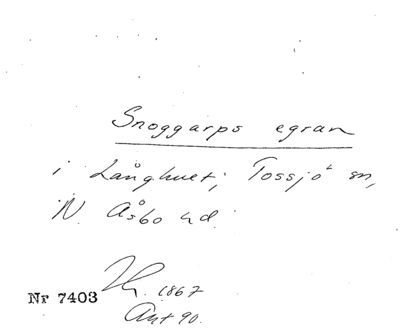 Snoggarps egran
i Långhuet; Tossjö sn,
N. Åsbo hd.
1867
Nr 7403
Ant 90.